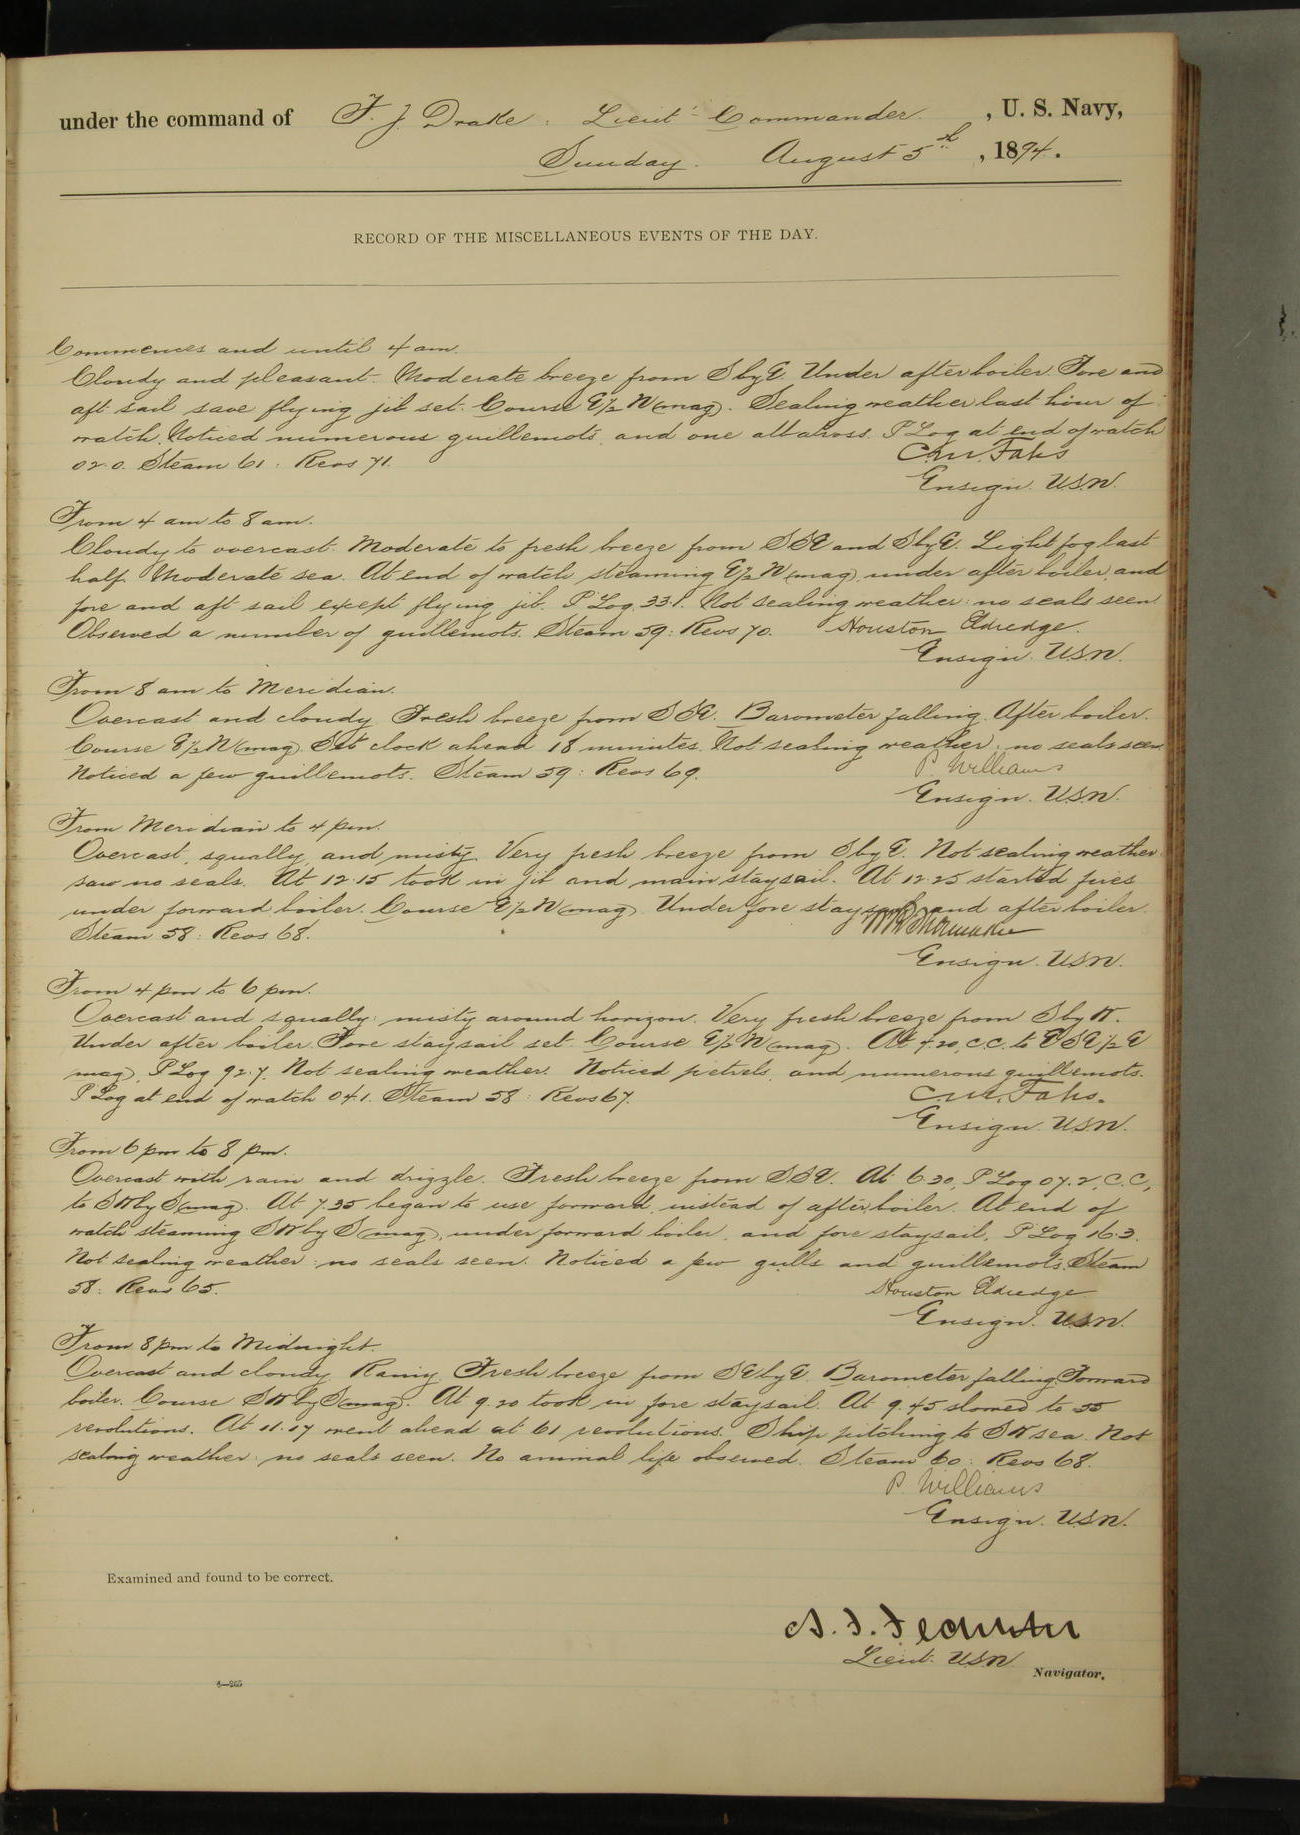 under the command of F. J. Drake. Lieut. Commander, U. S. Navy,
Sunday. August 5th, 1894.
RECORD OF THE MISCELLANEOUS EVENTS OF THE DAY.
Commences and until 4 am.
Cloudy and pleasant. Moderate breeze from S by E. Under after boiler. Fore and
aft sail save flying jib set. Course E½N (mag). Sealing weather last hour of
watch. Noticed numerous guillemots, and one albatross. P Log at end of watch
02.0. Steam 61: Revs 71.
C. M. Fahs
Ensign. U.S.N.
From 4 am to 8 am.
Cloudy to overcast. Moderate to fresh breeze from SSE and S by E. Light fog last
half. Moderate sea. At end of watch steaming E½N (mag), under after boiler, and
fore and aft sail except flying jib. P Log 33.1. Not sealing weather: no seals seen
Observed a number of guillemots. Steam 59: Revs 70. Houston Eldredge.
Ensign. U.S.N.
From 8 am to Meridian.
Overcast and cloudy. Fresh breeze from SSE. Barometer falling. After boiler.
Course E½N (mag). Set clock ahead 18 minutes. Not sealing weather: no seals seen
Noticed a few guillemots. Steam 59: Revs 69.
P. Williams
Ensign. U.S.N.
From Meridian to 4 pm.
Overcast, squally, and misty. Very fresh breeze from S by E. Not sealing weather
saw no seals. At 12.15 took in jib and main staysail. At 12.25 started fires
under forward boiler. Course E½N (mag). Under fore staysail and after boiler.
Steam 58: Revs 68.
Ensign. U.S.N.
From 4 pm to 6 pm.
Overcast and squally: misty around horizon. Very fresh breeze from S by W.
Under after boiler. Fore staysail set. Course E½N (mag). At 4.20, C.C. to ESE½E
mag), P Log 92.7. Not sealing weather. Noticed petrels, and numerous guillemots.
P Log at end of watch 04.1. Steam 58: Revs 67.
C. M. Fahs.
Ensign. U.S.N.
From 6 pm to 8 pm.
Overcast with rain and drizzle. Fresh breeze from SSE. At 6.30, P Log 07.2, C.C.,
to SW by S (mag). At 7.35 began to use forward, instead of after, boiler. At end of
watch steaming SW by S (mag), under forward boiler, and fore staysail, P Log 16.3.
Not sealing weather: no seals seen. Noticed a few gulls and guillemots. Steam
58: Revs 65.
Houston Eldredge
Ensign. U.S.N.
From 8 pm to Midnight.
Overcast and cloudy. Rainy. Fresh breeze from SE by E. Barometer falling. Forward
boiler. Course SW by S (mag). At 9.20 took in fore staysail. At 9.45 slowed to 55
revolutions. At 11.17 went ahead at 61 revolutions. Ship pitching to SW sea. Not
sealing weather: no seals seen. No animal life observed. Steam 60: Revs 68.
P. Williams
Ensign. U.S.N.
Examined and found to be correct.
Lieut. U.S.N.
Navigator.